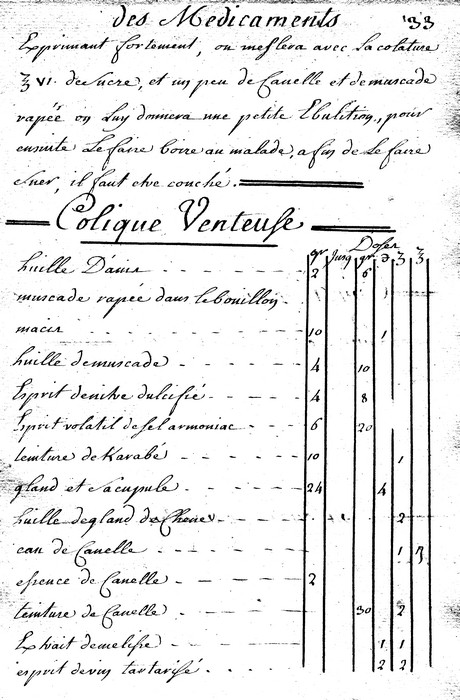 des Medicaments 133
Exprimant fortement, on meslera avec la colature
℥ VI. de sucre, et un peu de Canelle et de muscade
rapée on luy donnera une petite Ebulition, pour
ensuite le faire boire au malade, afin de le faire
suer, il faut etre couché.
Colique Venteuse
Doses
gr jusq gr ℈ ʒ ℥
huille D'anis 2 6
muscade rapée dans le bouillon
macis 10 1
huille de muscade 4 10
Esprit de nitre dulcifié 4 8
Esprit volatil de sel armoniac 6 20
teinture de Karabé 10 1
gland et sa cupule 24 4
huille de gland de Chene 2
eau de Canelle 1 ß
essence de Canelle 2
teinture de Canelle 30 2
Extrait de melisse 1 1
esprit de vin tartarisé 2 2